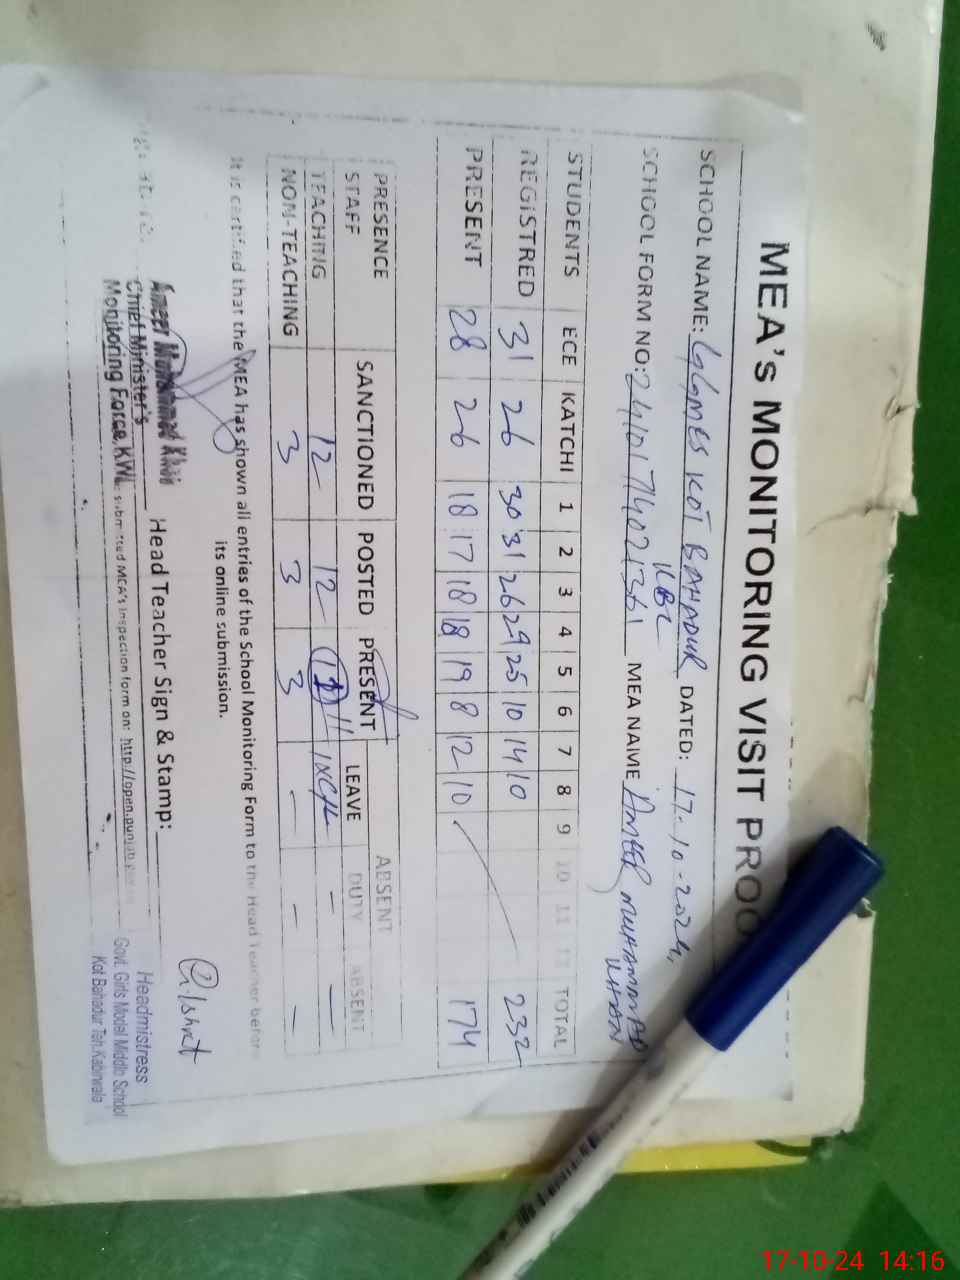 MEA'S MONITORING VISIT PROO
SCHOOL NAME: GGMES KOT BAHADUR DATED: 17-10-2024,
KBL
SCHOOL FORM NO: 241017402136 MEA NAME AMEER MUHAMMAD KHAN
STUDENTS ECE KATCHI 1 2 3 4 5 6 7 8 9 10 11 12 TOTAL
REGISTRED 31 26 30 31 26 29 25 10 14 10 232
PRESENT 28 26 18 17 18 18 19 8 12 10 174
PRESENCE ABSENT
STAFF SANCTIONED POSTED PRESENT LEAVE DUTY ABSENT
TEACHING 12 12 11 1XC/L - -
NON-TEACHING 3 3 3 - - -
It is certified that the MEA has shown all entries of the School Monitoring Form to the Head Teacher before
its online submission.
Ameer Muhammad Khan Head Teacher Sign & Stamp:
Chief Minister's
Monitoring Force, KWL submitted MEA's Inspection form on: http://open.punjab
Headmistress
Govt. Girls Model Middle School
Kot Bahadur Teh.Kabirwala
17-10-24 14:16